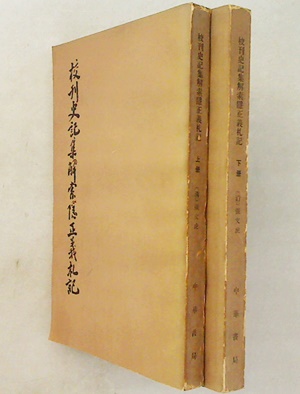 校刊史記集解索隱正義札記
校刊史記集解索隱正義札記
上册
中華書局
校刊史記集解索隱正義札記
下册
〔清〕張文虎
中華書局